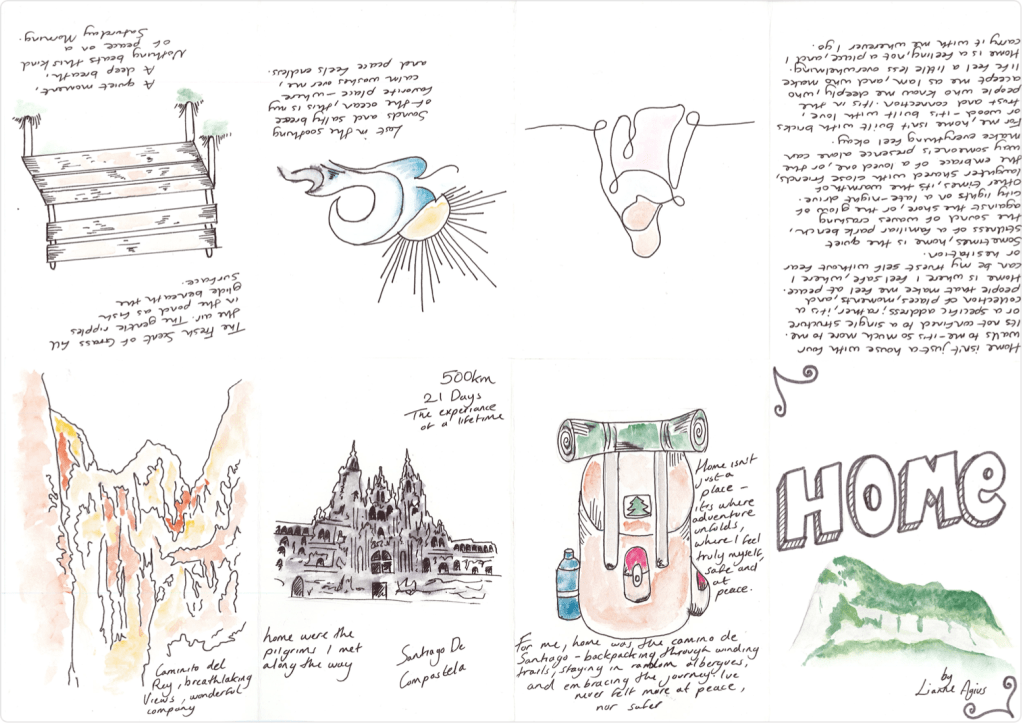 The Fresh Scent of Grass fill
the air. The gentle ripples
in the pond as fish
glide beneath the
Surface.
A quiet moment,
A deep breath,
Nothing beats this kind
of peace on a
Saturday Morning.
Lost in the soothing
Sounds and salty breeze
of the ocean, this is my
favorite place - where
calm washes over me,
and peace feels endless.
Home isn't just a house with four
walls to me - it's so much more to me.
Its not confined to a single structure
or a specific address; rather, it's a
collection of places, moments, and
people that make me feel at peace.
Home is where I feel safe, where I
can be my truest self without fear
or hesitation.
Sometimes, home is the quiet
stillness of a familiar park bench,
the sound of waves crashing
against the shore, or the glow of
city lights on a late-night drive.
Other times, it's the warmth of
laughter shared with close friends,
the embrace of a loved one, or the
way someone's presence alone can
make everything feel okay.
For me, home isn't built with bricks
or wood - it's built with love,
trust and connection. It's in the
people who know me deeply, who
accept me as I am, and who make
life feel a little less overwhelming.
Home is a feeling, not a place, and I
carry it with me wherever I go.
Caminito del
Rey, breathtaking
views, wonderful
company
500km
21 Days
The experiance
of a lifetime
home were the
pilgrims I met
along the way
Santiago De
Compostela
Home isn't
just a
place -
its where
adventure
unfolds,
where I feel
truly myself,
safe and
at
peace.
For me, home was the camino de
Santiago - backpacking through winding
trails, staying in random albergues,
and embracing the journey. Ive
never felt more at peace,
nor safer
HOME
by
Lianne Agius